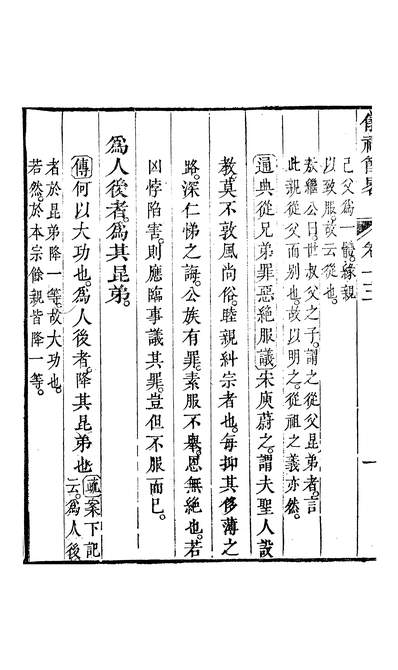 儀禮 卷十三 一
己父爲一體緣親
以致服故云從也
敖繼公曰世叔父之子謂之從父昆弟者言
此親從父而別也故以明之從祖之義亦然
通典從兄弟罪惡絶服議宋庾蔚之謂夫聖人設
教莫不敦風尚俗睦親糾宗者也每抑其侈薄之
路深仁悌之誨公族有罪素服不舉恩無絶也若
凶悖陷害則應臨事議其罪豈但不服而已
爲人後者爲其昆弟
傳何以大功也爲人後者降其昆弟也疏案下記
云爲人後
者於昆弟降一等故大功也
若然於本宗餘親皆降一等